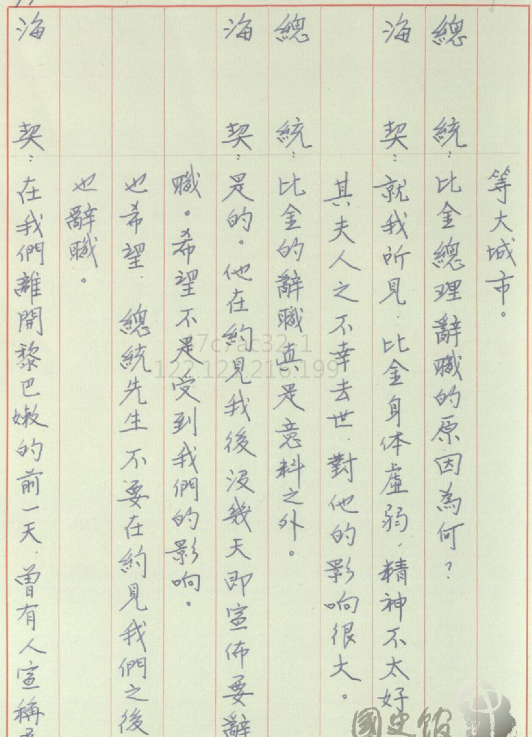 等大城市。
總　統：比金總理辭職的原因為何？
海　契：就我所見．比金身体虛弱，精神不太好
其夫人之不幸去世．對他的影响很大。
總　統：比金的辭職並是意料之外。
海　契：是的。他在約見我後沒幾天即宣佈要辭
職。希望不是受到我們的影响。
也希望．總統先生不要在約見我們之後
也辭職。
海　契：在我們離開黎巴嫩的前一天．曾有人宣稱
7c7ac32-1
122.122.216.199
國史館